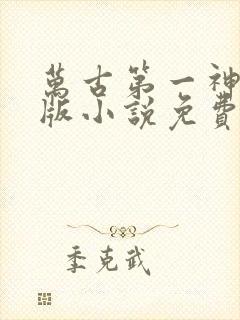 萬古第一神
版小說免費
季克武